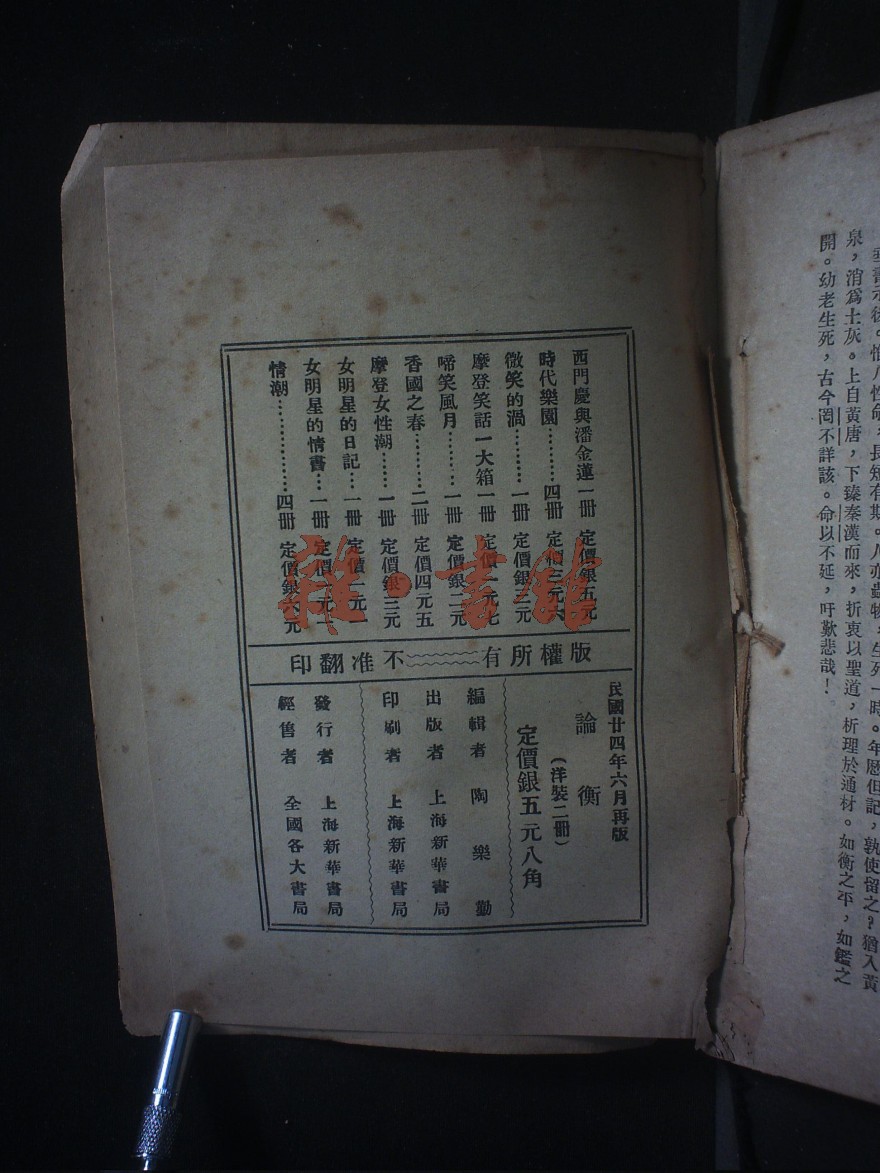 西門慶與潘金蓮一冊 定價銀五元
時代樂園………四冊 定價
微笑的渦………一冊 定價銀三元
摩登笑話一大箱一冊 定價
啼笑風月………一冊 定價銀二元
香國之春………二冊 定價四元五
摩登女性潮……一冊 定價銀三元
女明星的日記……一冊 定價
女明星的情書……一冊 定價
情潮……………四冊 定價銀六元
版權所有 不准翻印
民國廿四年六月再版
論衡
(洋裝二冊)
定價銀五元八角
編輯者 陶樂勤
出版者 上海新華書局
印刷者 上海新華書局
發行者 上海新華書局
經售者 全國各大書局
雜·書館
長短有期。人亦蟲物,生死一時。年歷但記,孰使留之?猶入黃
泉,消爲土灰。上自黃唐,下臻秦漢而來,折衷以聖道,析理於通材。如衡之平,如鑑之
開。幼老生死,古今罔不詳該。命以不延,吁歎悲哉!